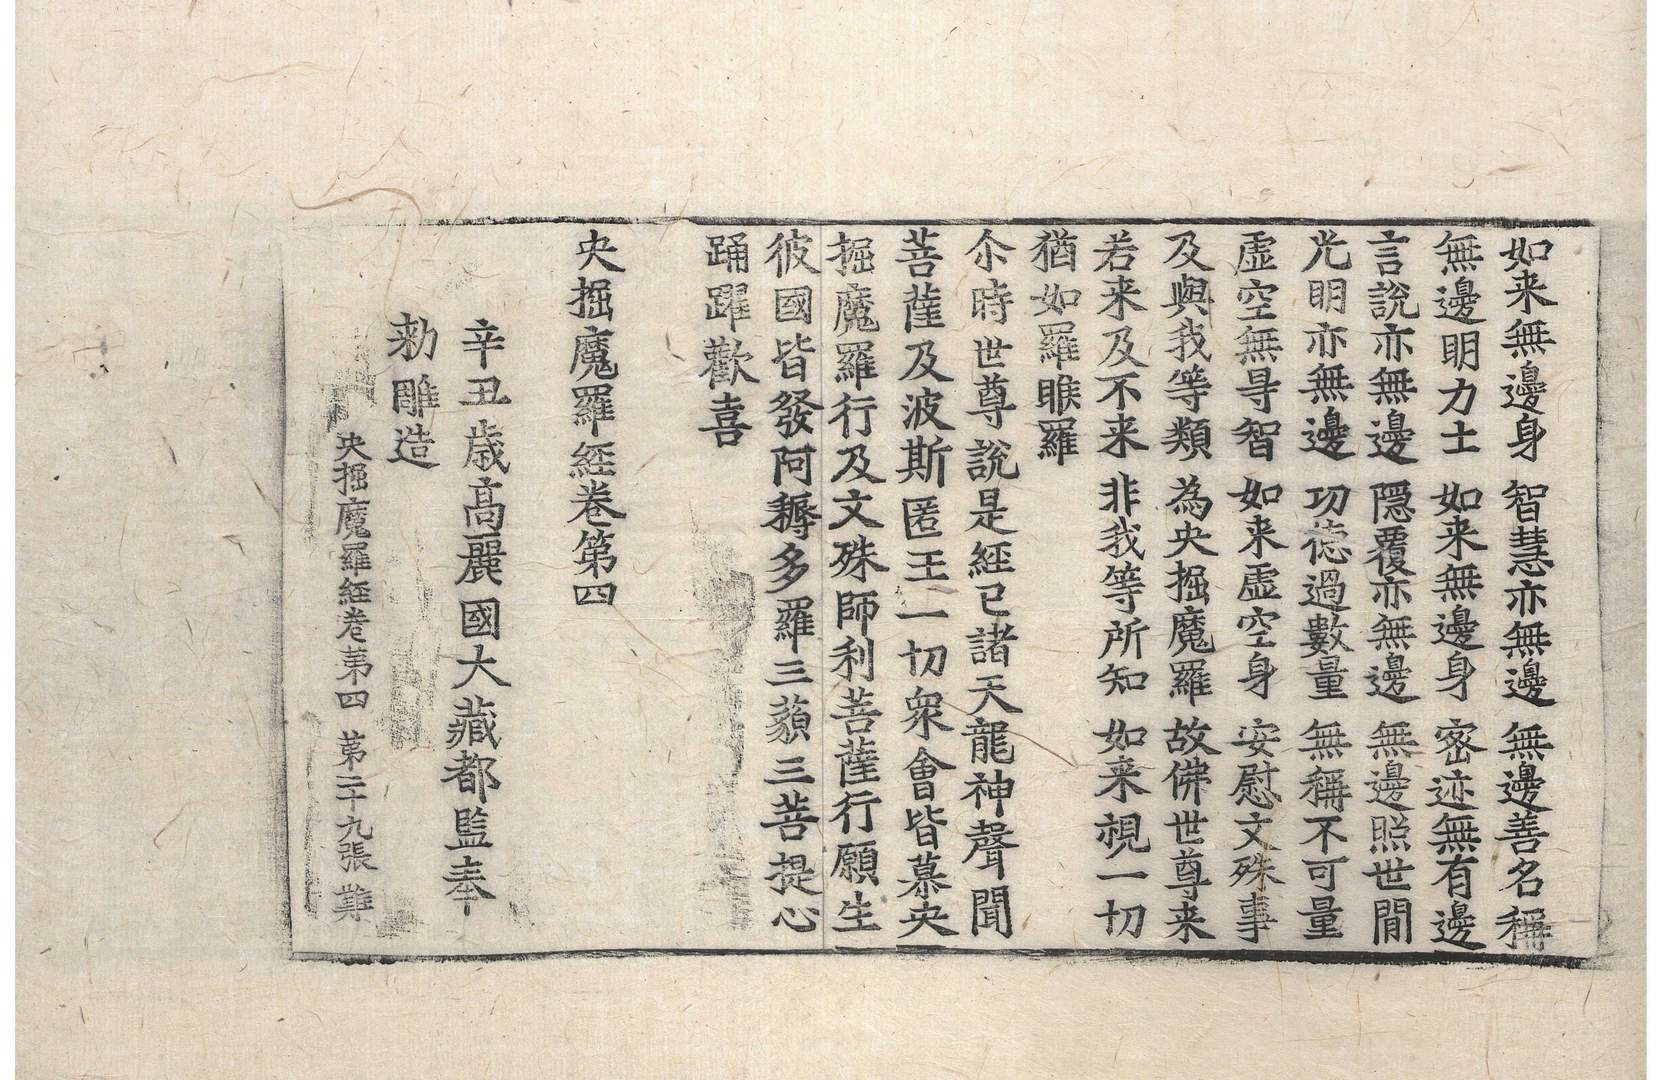 如来無邊身 智慧亦無邊 無邊善名稱
無邊明力士 如来無邊身 密迹無有邊
言說亦無邊 隱覆亦無邊 無邊照世間
光明亦無邊 功德過數量 無稱不可量
虛空無㝵智 如来虛空身 安慰文殊事
及與我等類 為央掘魔羅 故佛世尊来
若来及不来 非我等所知 如来視一切
猶如羅睺羅
尒時世尊說是經已諸天龍神聲聞
菩薩及波斯匿王一切衆會皆慕央
掘魔羅行及文殊師利菩薩行願生
彼國皆發阿耨多羅三藐三菩提心
踊躍歡喜
央掘魔羅經卷第四
辛丑歳高麗國大藏都監奉
勑雕造
央掘魔羅経卷第四 第二十九張 難